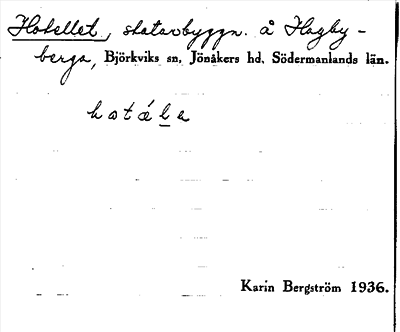 Hotellet, statarbyggn. å Hagby-
berga, Björkviks sn, Jönåkers hd, Södermanlands län.
hotǽle
Karin Bergström 1936.